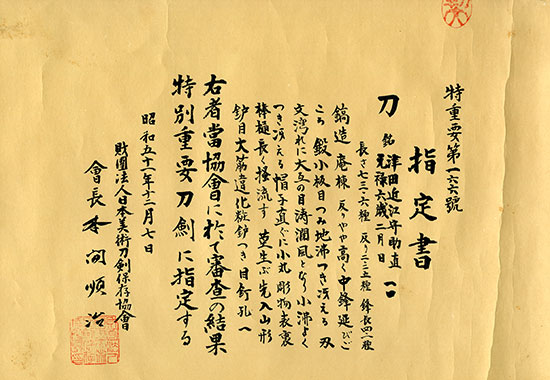 特重要第一六六號
指定書
刀 銘 津田近江守助直
元禄六歳二月日
長さ七三・六糎 反り二・三五糎 鋒長四・三糎
鎬造 庵棟 反りやや高く中鋒延びご
ころ 鍛小板目つみ地沸つき冴える 刃
文湾れに大互の目涛瀾風となり小沸よく
つき冴える 帽子直ぐに小丸 彫物表裏
棒樋長く掻流す 茎生ぶ先入山形
鑢目大筋違化粧鑢つき目釘孔一
右者當協會に於て審査の結果
特別重要刀劍に指定する
昭和五十一年十二月七日
財團法人日本美術刀剣保存協會
會長 本間順治